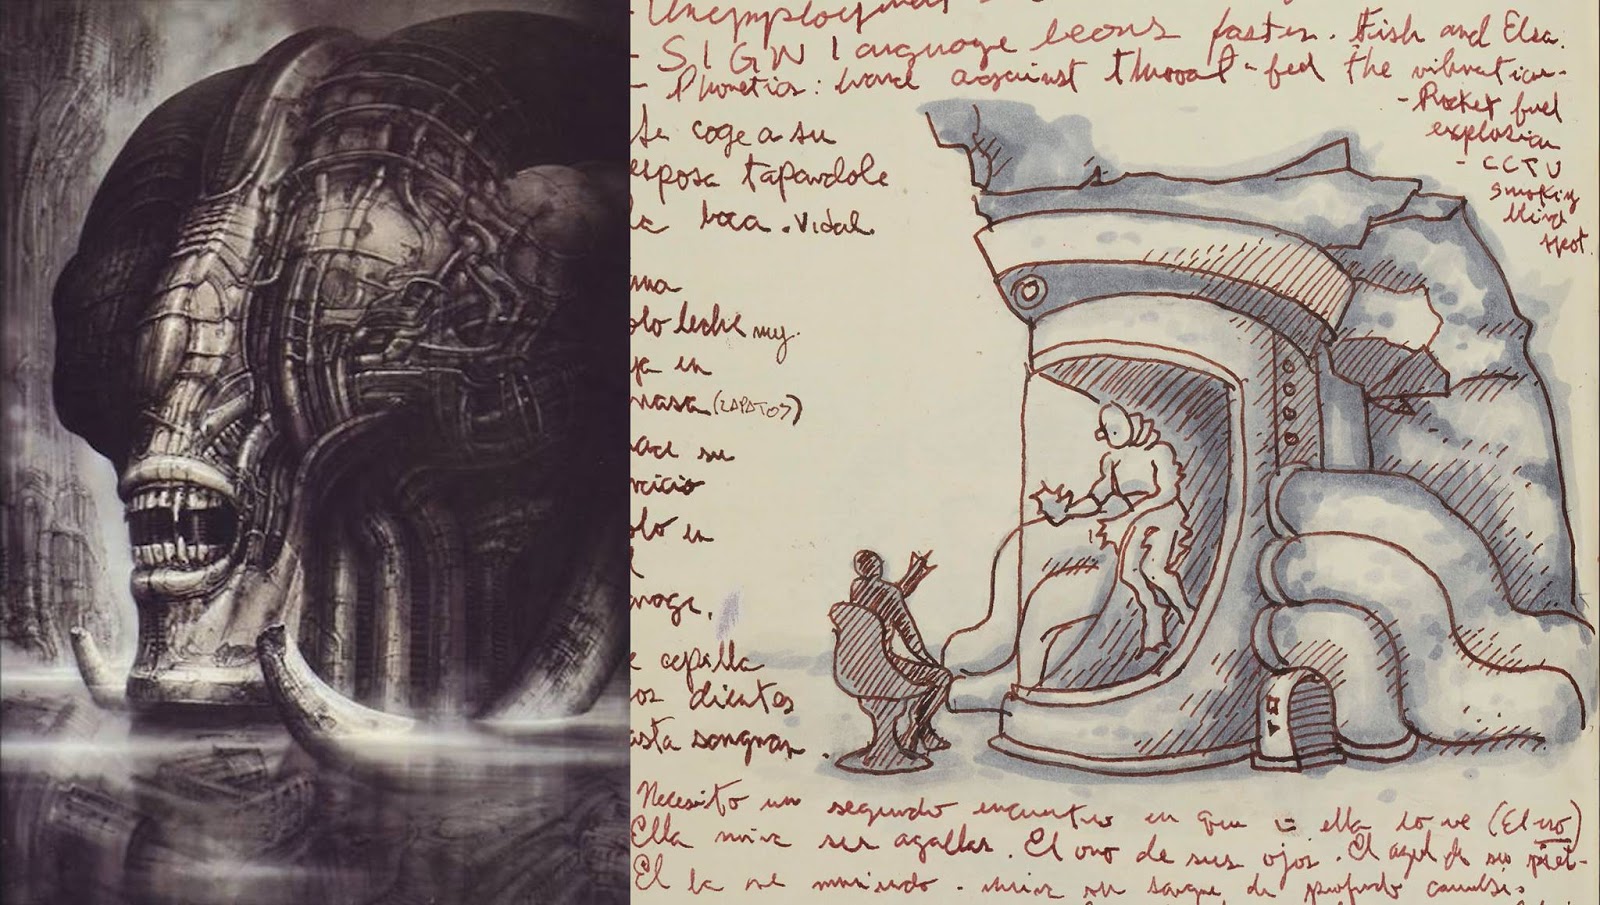 - Unemployment
- SIGN language leons faster. Fish and Elsa.
- Phonetics: hand against throat - feel the vibration-
- Rocket fuel
explosion
- CCTV
smoking
blind
spot.
Se coge a su
esposa tapandole
la boca. Vidal.
una
solo leche my.
ja en
masa (ZAPATOS)
hace su
rcicio
olo en
anoge.
e cepilla
os dientes
asta sangrar.
Necesito un segundo encuentro en que ella lo ve (El no)
Ella mira sus agallas. El oro de sus ojos. El azul de su piel-
El la ve mirando. mira su sangre de profundo